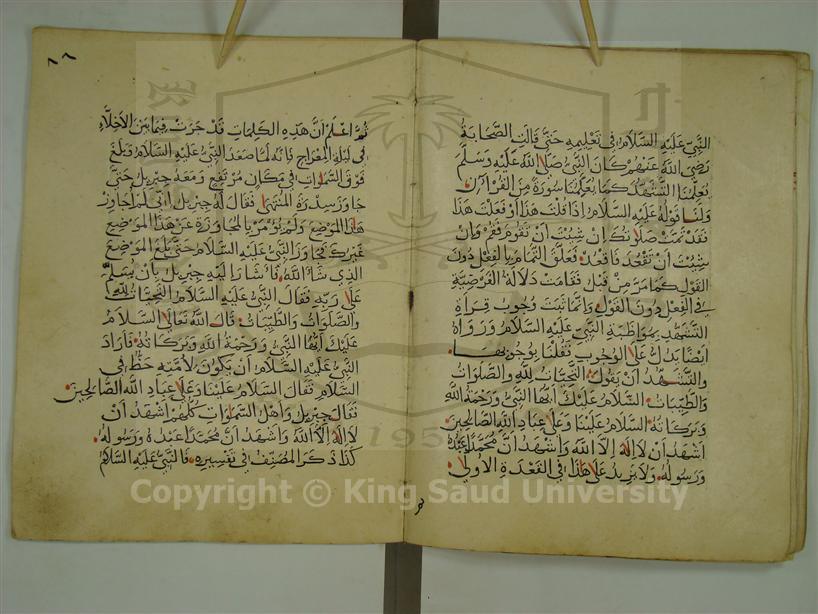 النبي عليه السلام في تعليمه حتى قالت الصحابة
رضي الله عنهم كان النبي صلى الله عليه وسلم
يعلمنا التشهد كما يعلمنا سورة من القرآن
ولنا قوله عليه السلام اذا قلت هذا أو فعلت هذا
فقد تمت صلوتك ان شئت أن تقوم فقم وان
شئت أن تقعد فاقعد فعلق التمام بالفعل دون
القول كما مر من قبل فقامت دلالة الفرضية
في الفعل دون القول وانما ثبت وجوب قراءة
التشهد بمواظبة النبي عليه السلام ورواه
ايضا يدل على الوجوب فقلنا بوجوبها
والتشهد أن يقول التحيات لله والصلوات
والطيبات السلام عليك أيها النبي ورحمة الله
وبركاته السلام علينا وعلى عباد الله الصالحين
اشهد ان لا اله الا الله واشهد أن محمدا عبده
ورسوله ولا يزيد على هذا في القعدة الاولى
ثم اعلم أن هذه الكلمات قد جرت فيما بين الاخلاء
في ليلة المعراج بانه لما صعد النبي عليه السلام وبلغ
فوق السموات في مكان مرتفع ومعه جبريل حتى
جاوز سدرة المنتهى فقال له جبريل اني لم اجاوز
هذا الموضع ولم يؤمر بالمجاوزة عن هذا الموضع
غيرك فجاوز النبي عليه السلام حتى بلغ الموضع
الذي شاء الله فاشار اليه جبريل بان يسلم
على ربه فقال النبي عليه السلام التحيات لله
والصلوات والطيبات قال الله تعالى السلام
عليك ايها النبي ورحمة الله وبركاته فاراد
النبي عليه السلام أن يكون لأمته حظ في
السلام فقال السلام علينا وعلى عباد الله الصالحين
فقال جبريل واهل السموات كلهم اشهد ان
لا اله الا الله واشهد أن محمدا عبده ورسوله
كذا ذكر المصنف في تفسيره قال النبي عليه السلام
Copyright © King Saud University